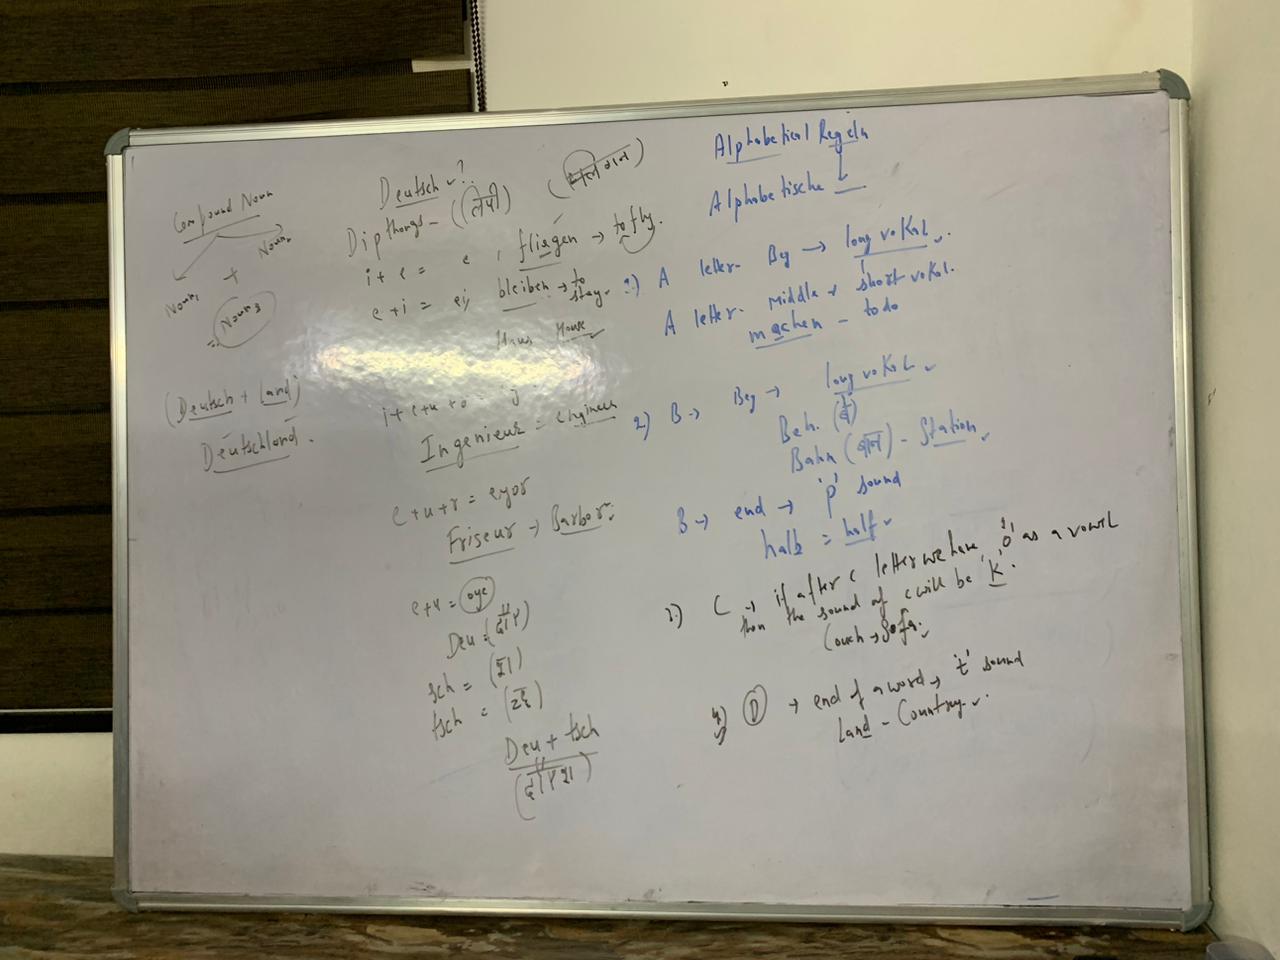 Compound Noun
Noun1 + Noun2
= Noun3
(Deutsch + Land)
Deutschland.
Deutsch ?
Dipthongs -
i+e = e , fliegen → to fly.
e+i = ei bleiben → to stay.
Haus House
i+e+u
Ingenieur = engineer
e+u+r = eyor
Friseur → Barbor
e+u = oye
Deu =
sch =
tsch =
Deu + tsch
Alphabetical Regeln
Alphabetische
1) A letter - Beg → long voKal.
A letter - Middle → short voKal.
machen - to do
2) B → Beg → long voKal
Beh.
Bahn - Station
B → end → 'p' sound
halb = half
3.) C → if after c letter we have 'o' as a vowel
then the sound of c will be 'K'.
Couch → Sofa.
4) D → end of a word → 't' sound
Land - Country